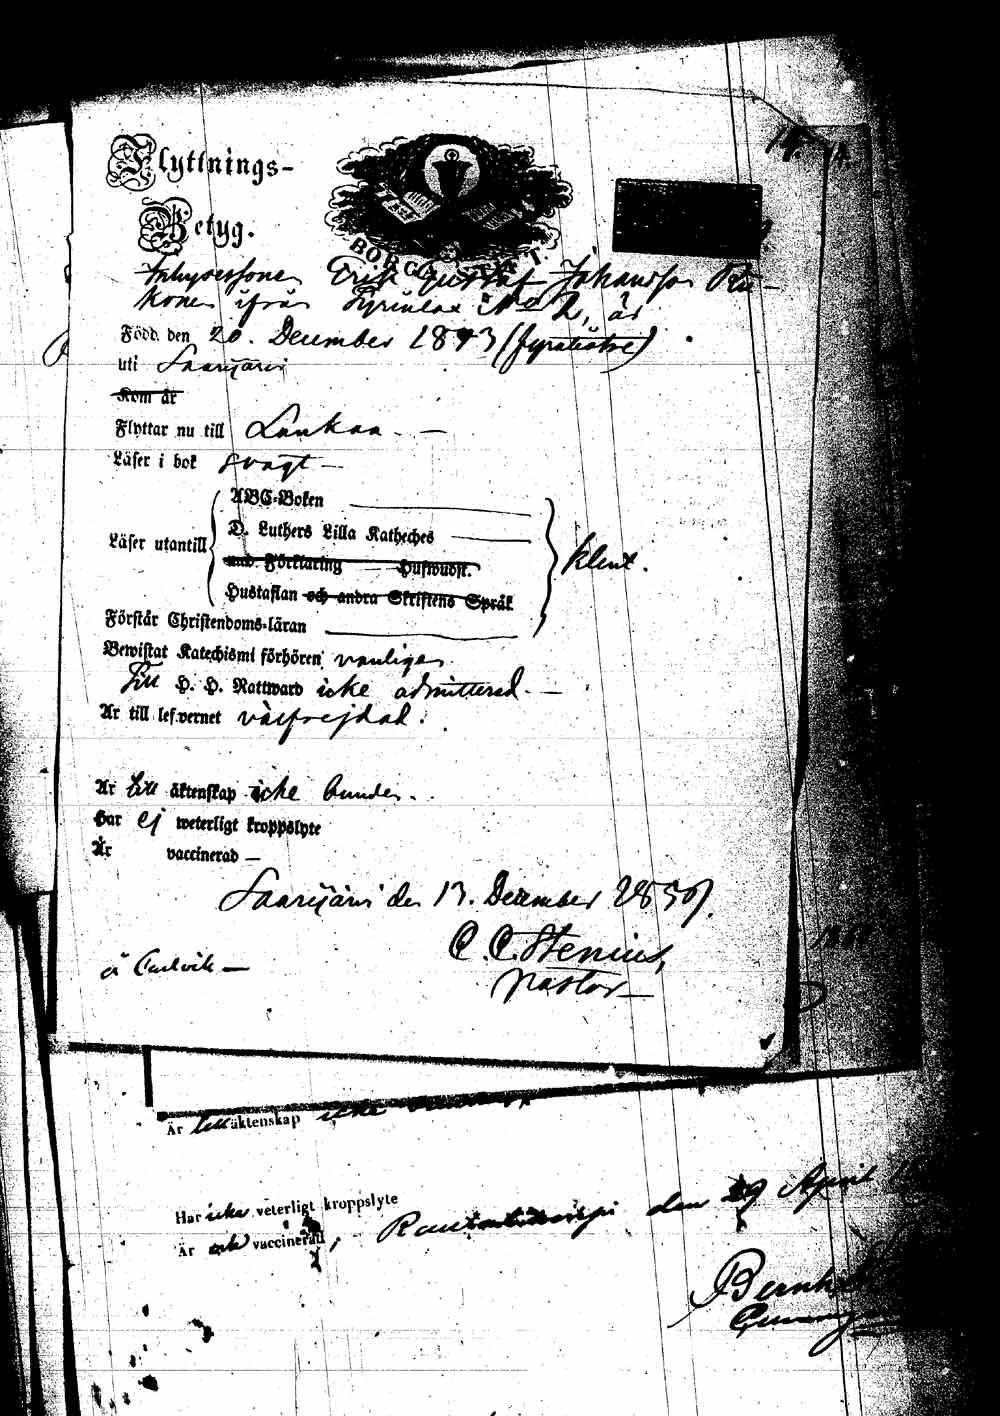 14.
Flyttnings-
Betyg.
BORGÅ STIFT.
Inhysessonen Erik Gustaf Johansson Ru-
konen ifrån Kyrönlax No 2, är
Född. den 20. December 1843 (fyratiotre)
uti Saarijärvi
Kom år
Flyttar nu till Laukaa. —
Läser i bok svagt —
ABC-Boken
D. Luthers Lilla Katheches
Läser utantill
klent.
och Förklaring Hufwudst.
Hustaflan och andra Skriftens Språk
Förstår Christendoms-läran
Bewistat Katechismi förhören vanligen
Till H. H. Nattward icke admitterad. —
Är till lefvernet välfrejdad.
Är till äktenskap icke bunden.
Har ej weterligt kroppslyte
Är vaccinerad —
Saarijärvi den 13. December 1859.
C. C. Stenius,
Pastor —
Är till äktenskap icke
Har icke veterligt kroppslyte
Är och vaccinerad, Rautalampi den 29 April
Bernh